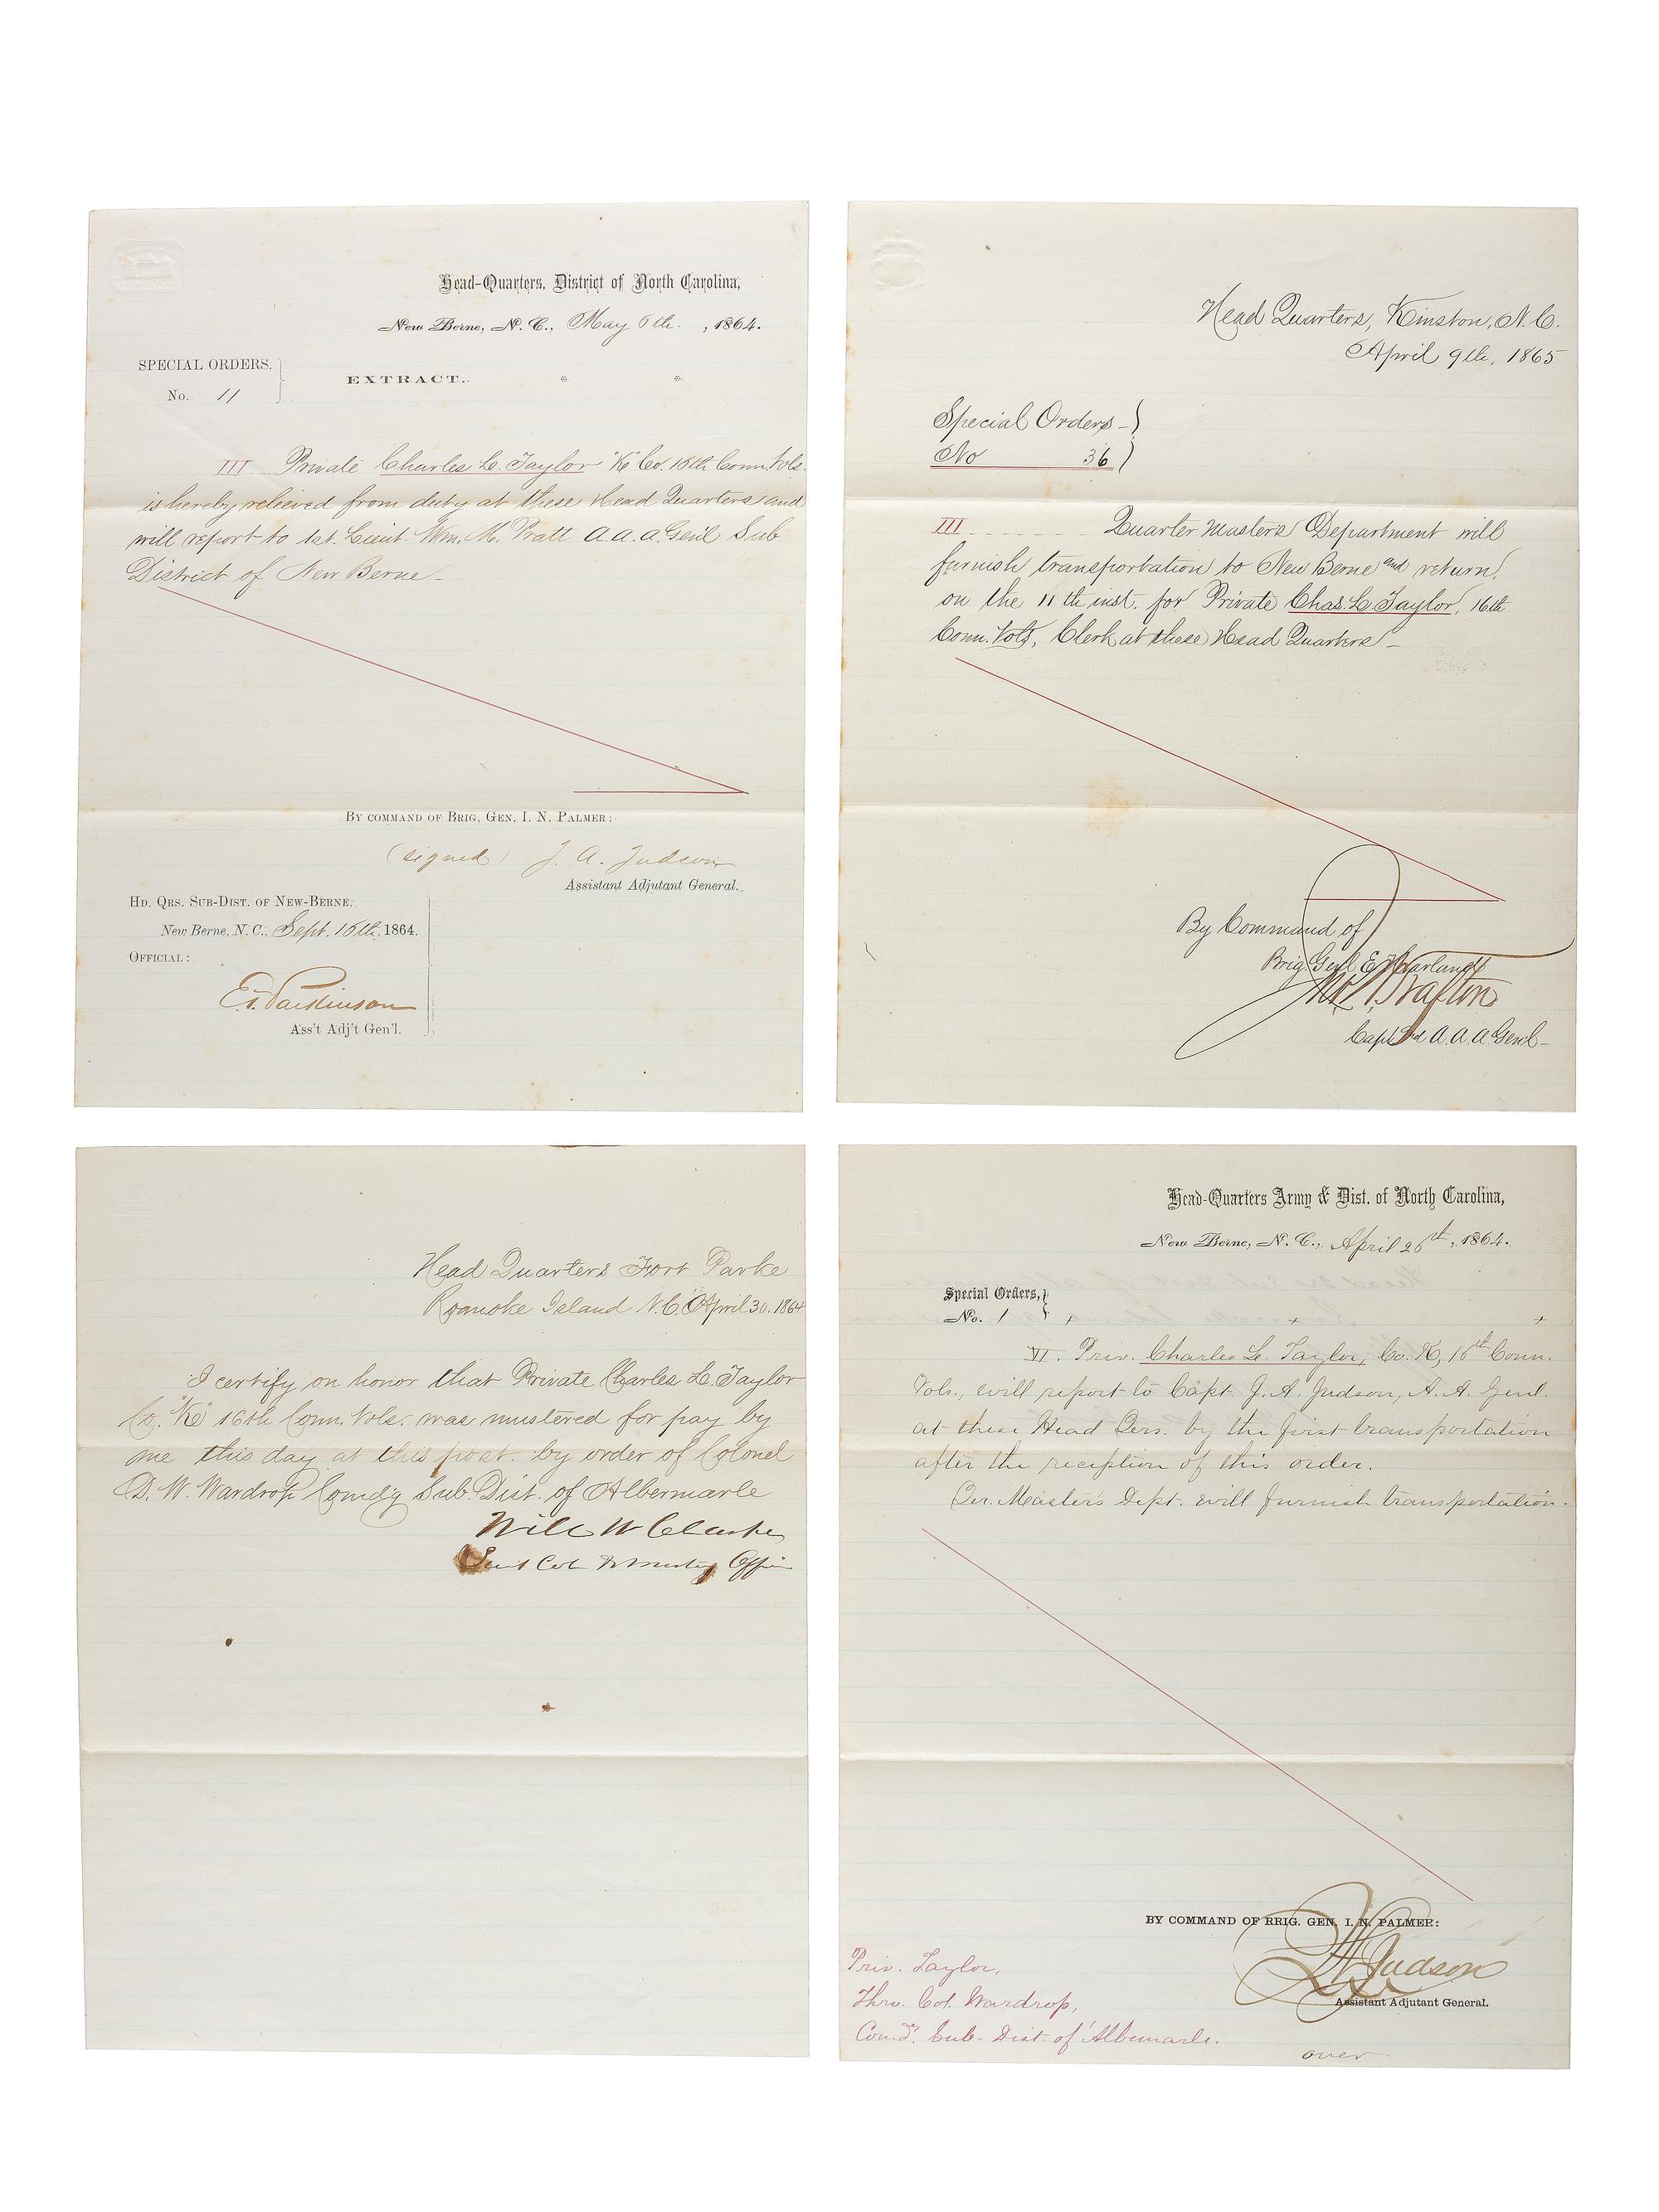 Head-Quarters, District of North Carolina,
New Berne, N. C., May 6th. , 1864.
SPECIAL ORDERS,
No. 11
EXTRACT. * *
III Private Charles L. Taylor "K" Co. 16th Conn. Vols.
is hereby relieved from duty at these Head Quarters and
will report to 1st. Lieut. Wm. H. Pratt A.A.A. Genl Sub
District of New Berne_
BY COMMAND OF BRIG. GEN. I. N. PALMER:
(signed) J. A. Judson
Assistant Adjutant General.
HD. QRS. SUB-DIST. OF NEW-BERNE,
New Berne, N. C., Sept. 16th, 1864.
OFFICIAL:
Parkinson
Ass't Adj't Gen'l.
Head Quarters, Kinston, N.C.
April 9th, 1865
Special Orders_}
No 36}
III Quarter Master's Department will
furnish transportation to New Berne and return,
on the 11th inst. for Private Chas. L. Taylor, 16th
Conn. Vols, Clerk at these Head Quarters_
By Command of
Brig Genl E Harland
Capt and A.A.A. Genl_
Head Quarters Fort Parke
Roanoke Island N.C. April 30. 1864
I certify on honor that Private Charles L. Taylor
Co. "K" 16th Conn. Vols. was mustered for pay by
me this day at this post. by order of Colonel
D. W. Wardrop Comd'g Sub. Dist. of Albermarle
Will W Clarke
Lieut Col & Mustg Officer
Head-Quarters Army & Dist. of North Carolina,
New Berne, N. C., April 26th, 1864.
Special Orders,}
No. 1 + + +
VI. Priv. Charles L. Taylor, Co. K, 16th Conn.
Vols., will report to Capt. J. A. Judson, A. A. Genl.
at these Head Qrs. by the first transportation
after the reception of this order.
Qr. Master's Dept. will furnish transportation.
BY COMMAND OF BRIG. GEN. I. N. PALMER:
JA Judson
Assistant Adjutant General.
Priv. Taylor,
Thro. Col. Wardrop,
Comd'. Sub-Dist. of Albemarle.
over